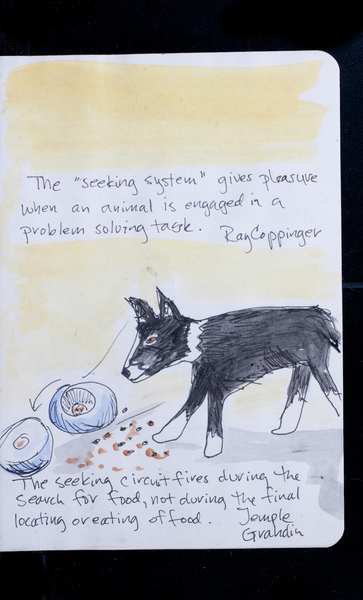 The "seeking system" gives pleasure
when an animal is engaged in a
problem solving task. Ray Coppinger
The seeking circuit fires during the
search for food, not during the final
locating or eating of food. Temple
Grandin